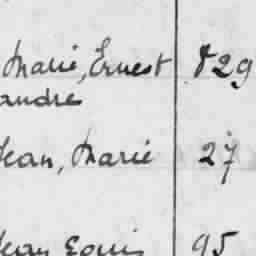 Marie, Ernest 829
andre
Jean, Marie 27
Jean Louis 95